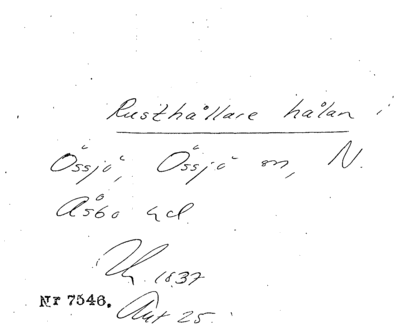 Rusthållare hålan i
Össjö, Össjö sn, N.
Åsbo hd.
1837
Nr 7546.
Ant 25.